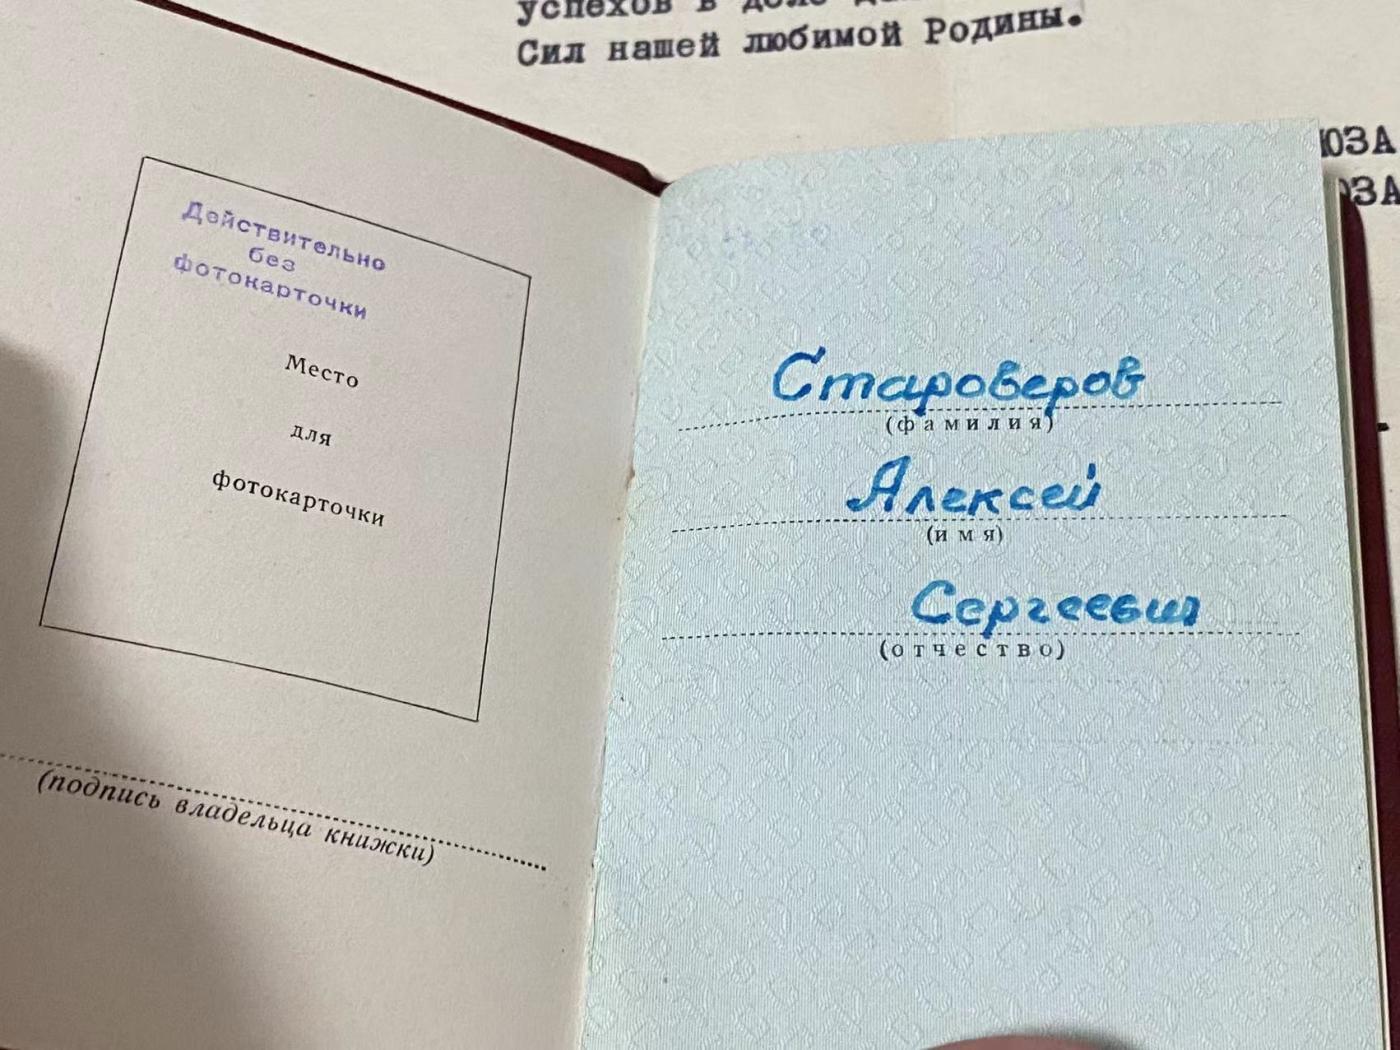 успехов в деле
Сил нашей любимой Родины.
ЮЗА
ОЗА
Действительно
без
фотокарточки
Место
для
фотокарточки
(подпись владельца книжки)
Староверов
(фамилия)
Алексей
(имя)
Сергеевич
(отчество)